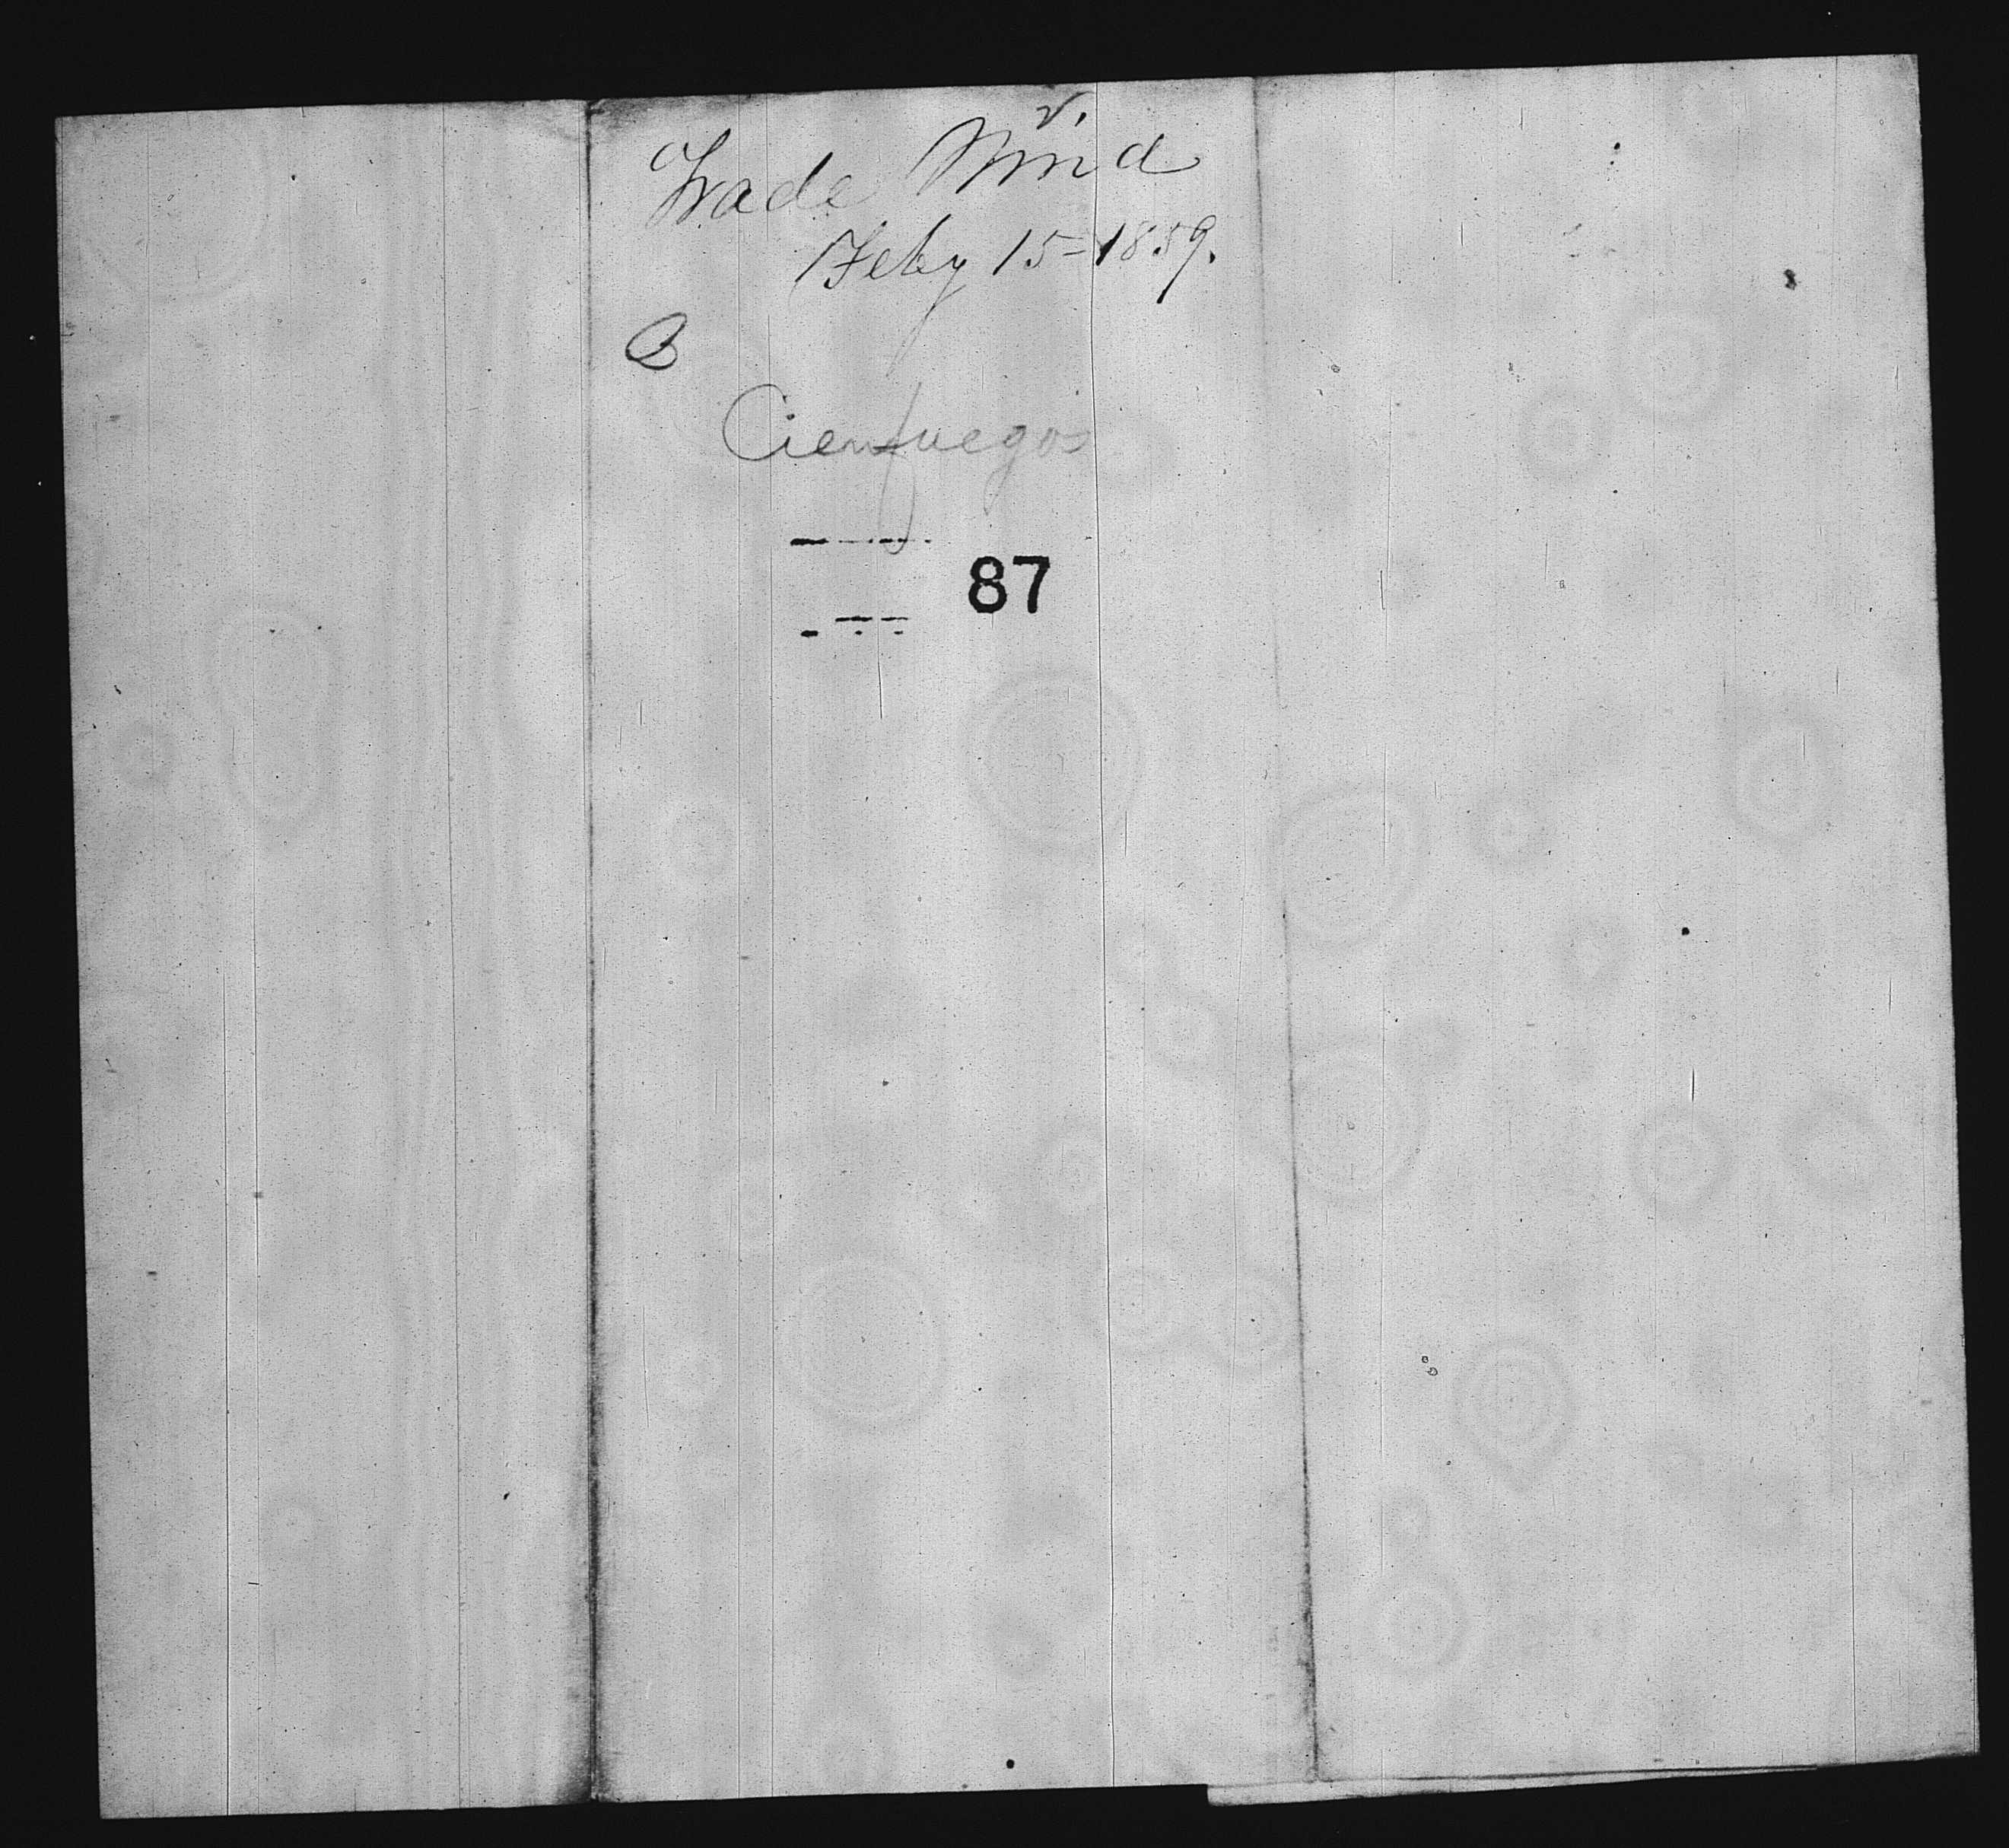 Trade Wind
Feby 15=1859.
B
Cienfuegos
87